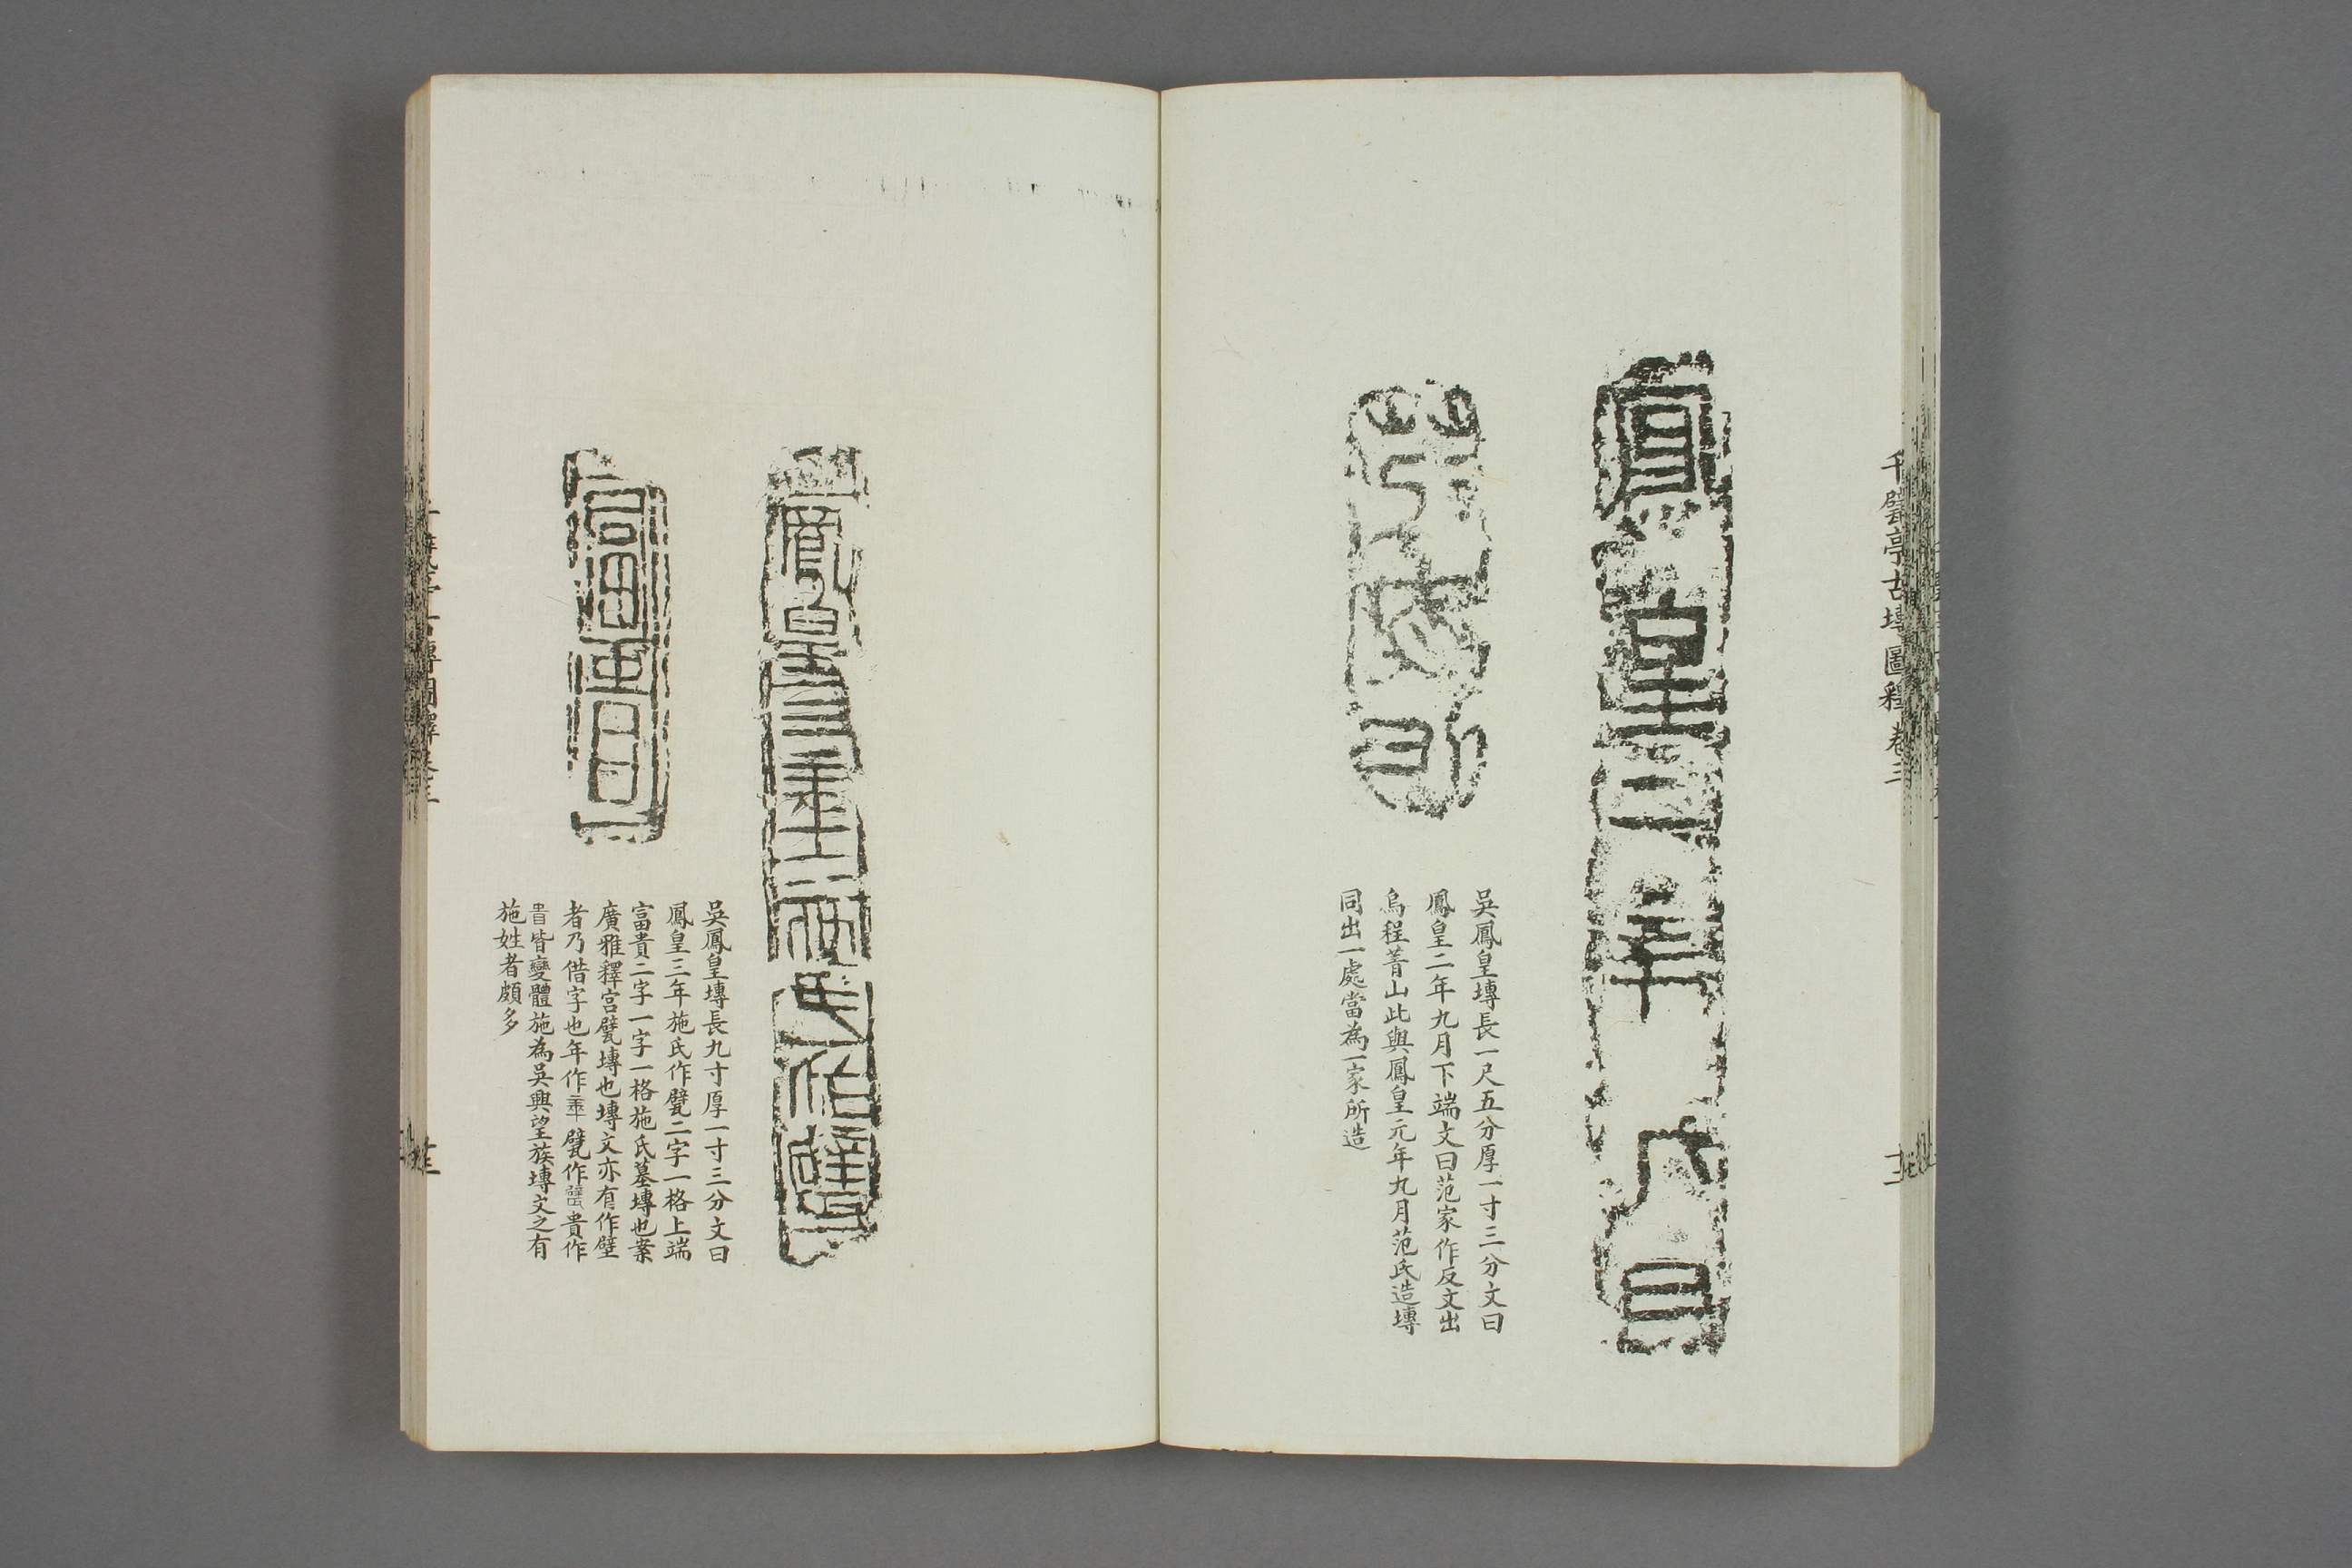 千甓亭古塼圖釋卷三
十二
鳳皇二年九月
范家作
吳鳳皇塼長一尺五分厚一寸三分文曰
鳳皇二年九月下端文曰范家作反文出
烏程菁山此與鳳皇元年九月范氏造塼
同出一處當為一家所造
鳳皇三年施氏作甓
富貴
吳鳳皇塼長九寸厚一寸三分文曰
鳳皇三年施氏作甓二字一格上端
富貴二字一字一格施氏墓塼也案
廣雅釋宮甓塼也塼文亦有作壁
者乃借字也年作𠦜甓作𤮚貴作
𫎇皆變體施為吳興望族塼文之有
施姓者頗多